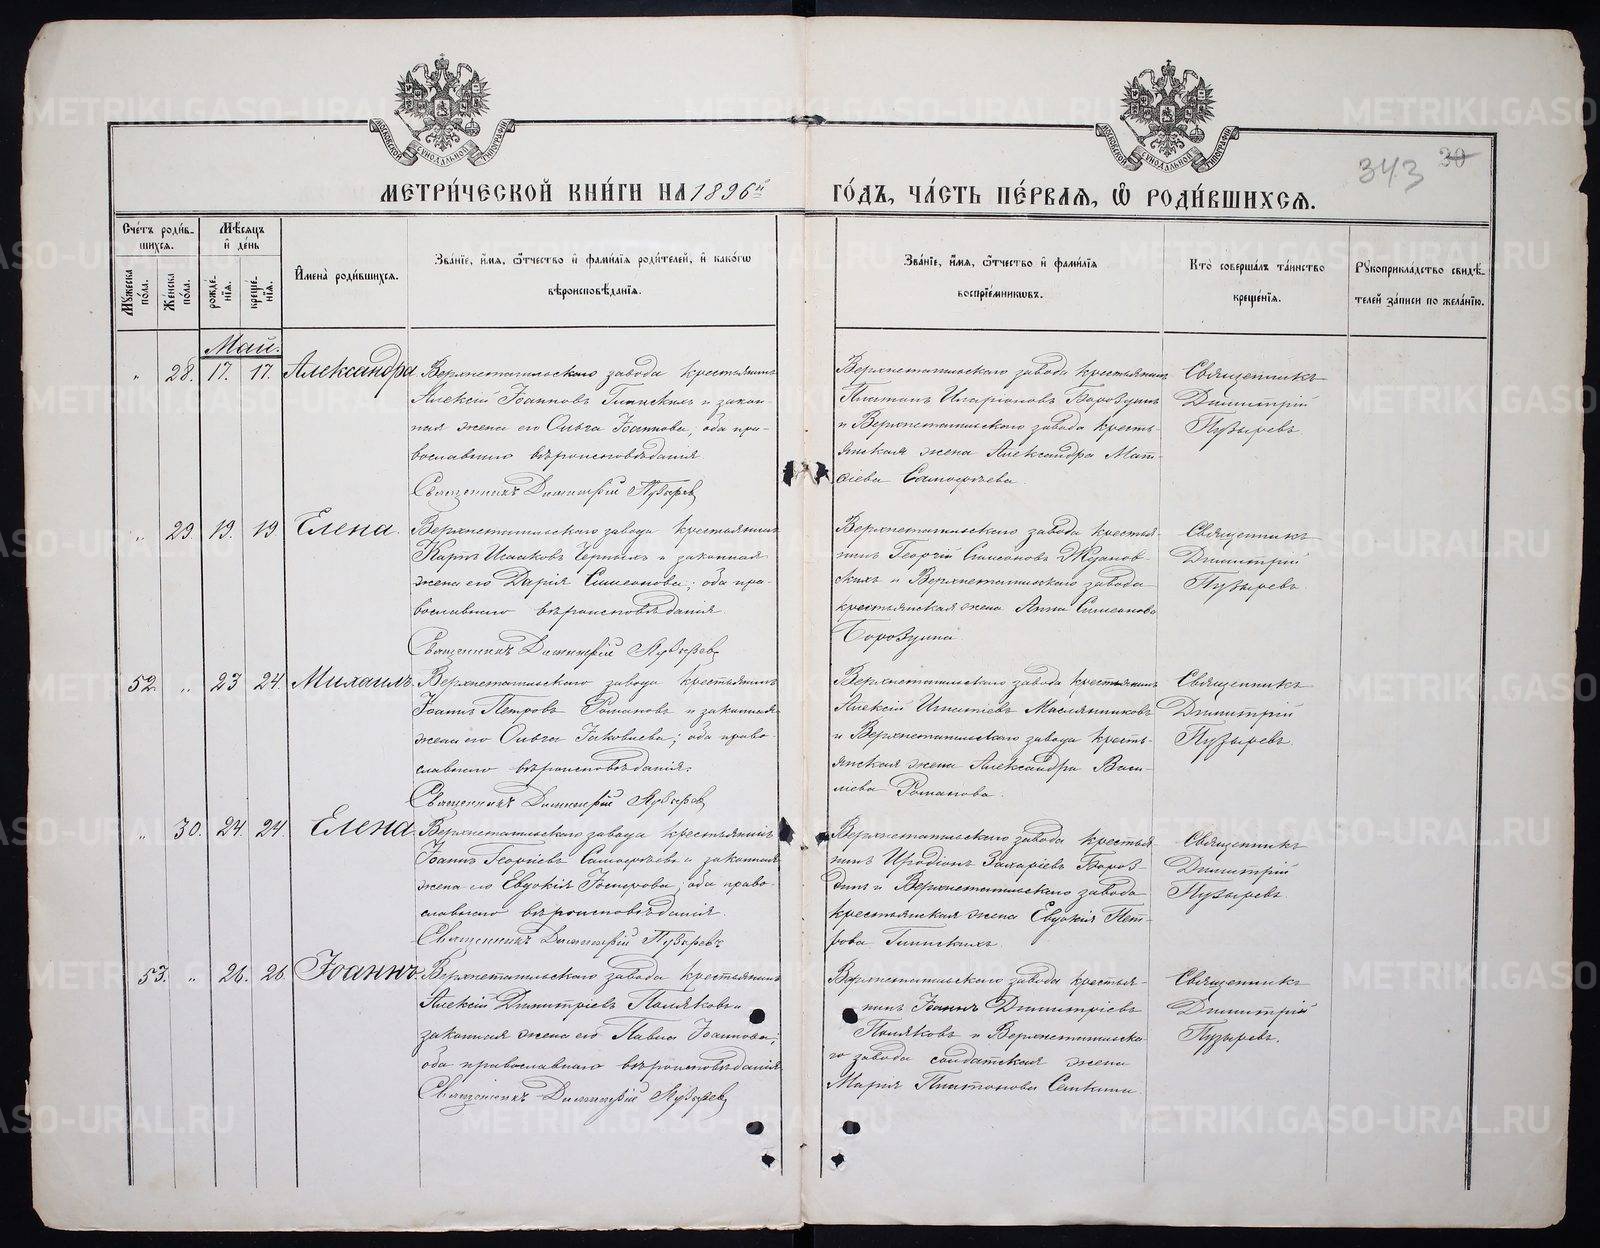 МОСКОВСКОЙ СѴНОДАЛЬНОЙ ТИПОГРАФІИ
МОСКОВСКОЙ СѴНОДАЛЬНОЙ ТИПОГРАФІИ
343 30
МЕТРИ́ЧЕСКОЙ КНИ́ГИ НА 1896й
ГО́ДЪ, ЧА́СТЬ ПЕ́РВАЯ, Ѽ РОДИ́ВШИХСЯ.
Сче́тъ роди́в-
шихся.
Му́жеска по́ла.
Же́нска по́ла.
Мѣ́сяцъ
и҆ де́нь
рожде́-
нїя.
креще́-
нїя.
И҆мена̀ роди́вшихся.
Зва́нїе, и҆́мя, ѻ҆́тчество и҆ фами́лїя роди́телей, и҆ како́гѡ
вѣроисповѣ́данїя.
Зва́нїе, и҆́мя, ѻ҆́тчество и҆ фами́лїя
воспрїе́мниковъ.
Кто̀ соверша́лъ та́инство
креще́нїя.
Рꙋкоприкла́дство свидѣ́-
телей за́писи по жела́нїю.
Май.
" 28. 17. 17. Александра
Верхнетагильскаго завода крестьянинъ
Алексій Іоанновъ Гилискихъ и закон-
ная жена его Ольга Іоаннова; оба пра-
вославнаго вѣроисповѣданія
Священникъ Димитрій Пузыревъ
Верхнетагильскаго завода крестьянинъ
Платонъ Иларіоновъ Бороздинъ
и Верхнетагильскаго завода кресть-
янская жена Александра Мат-
ѳіева
Священникъ
Димитрій
Пузыревъ
" 29. 19. 19. Елена.
Верхнетагильскаго завода крестьянинъ
Карпъ Исааковъ Черныхъ и законная
жена его Дарія Симеонова; оба пра-
вославнаго вѣроисповѣданія.
Священникъ Димитрій Пузыревъ
Верхнетагильскаго завода крестья-
нинъ Георгій Симеоновъ Ждановс-
кихъ и Верхнетагильскаго завода
крестьянская жена Анна Симеонова
Священникъ
Димитрій
Пузыревъ.
52. " 23 24. Михаилъ.
Верхнетагильскаго завода крестьянинъ
Іоаннъ Петровъ Романовъ и законная
жена его Ольга Іаковлева; оба право-
славнаго вѣроисповѣданія.
Священникъ Димитрій Пузыревъ
Верхнетагильскаго завода крестьянинъ
Алексій Игнатіевъ Маслянниковъ
и Верхнетагильскаго завода кресть-
янская жена Александра Васи-
лиева Романова.
Священникъ
Димитрій
Пузыревъ.
" 30. 24. 24. Елена
Верхнетагильскаго завода крестьянинъ
Іоаннъ Георгіевъ и законная
жена его Евдокія; оба право-
славнаго вѣроисповѣданія.
Священникъ Димитрій Пузыревъ
Верхнетагильскаго завода крестья-
нинъ Иродіонъ Захаріевъ Бороз-
динъ и Верхнетагильскаго завода
крестьянская жена Евдокія Пет-
рова Гилискихъ.
Священникъ
Димитрій
Пузыревъ.
53. " 26. 26. Іоаннъ.
Верхнетагильскаго завода крестьянинъ
Алексій Димитріевъ Поляковъ и
законная жена его Павла Іоаннова;
оба православнаго вѣроисповѣданія
Священникъ Димитрій Пузыревъ
Верхнетагильскаго завода крестья-
нинъ Іоаннъ Димитріевъ
Поляковъ и Верхнетагильска-
го завода солдатская жена
Марія Платонова
Священникъ
Димитрій
Пузыревъ.
METRIKI.GASO-URAL.RU